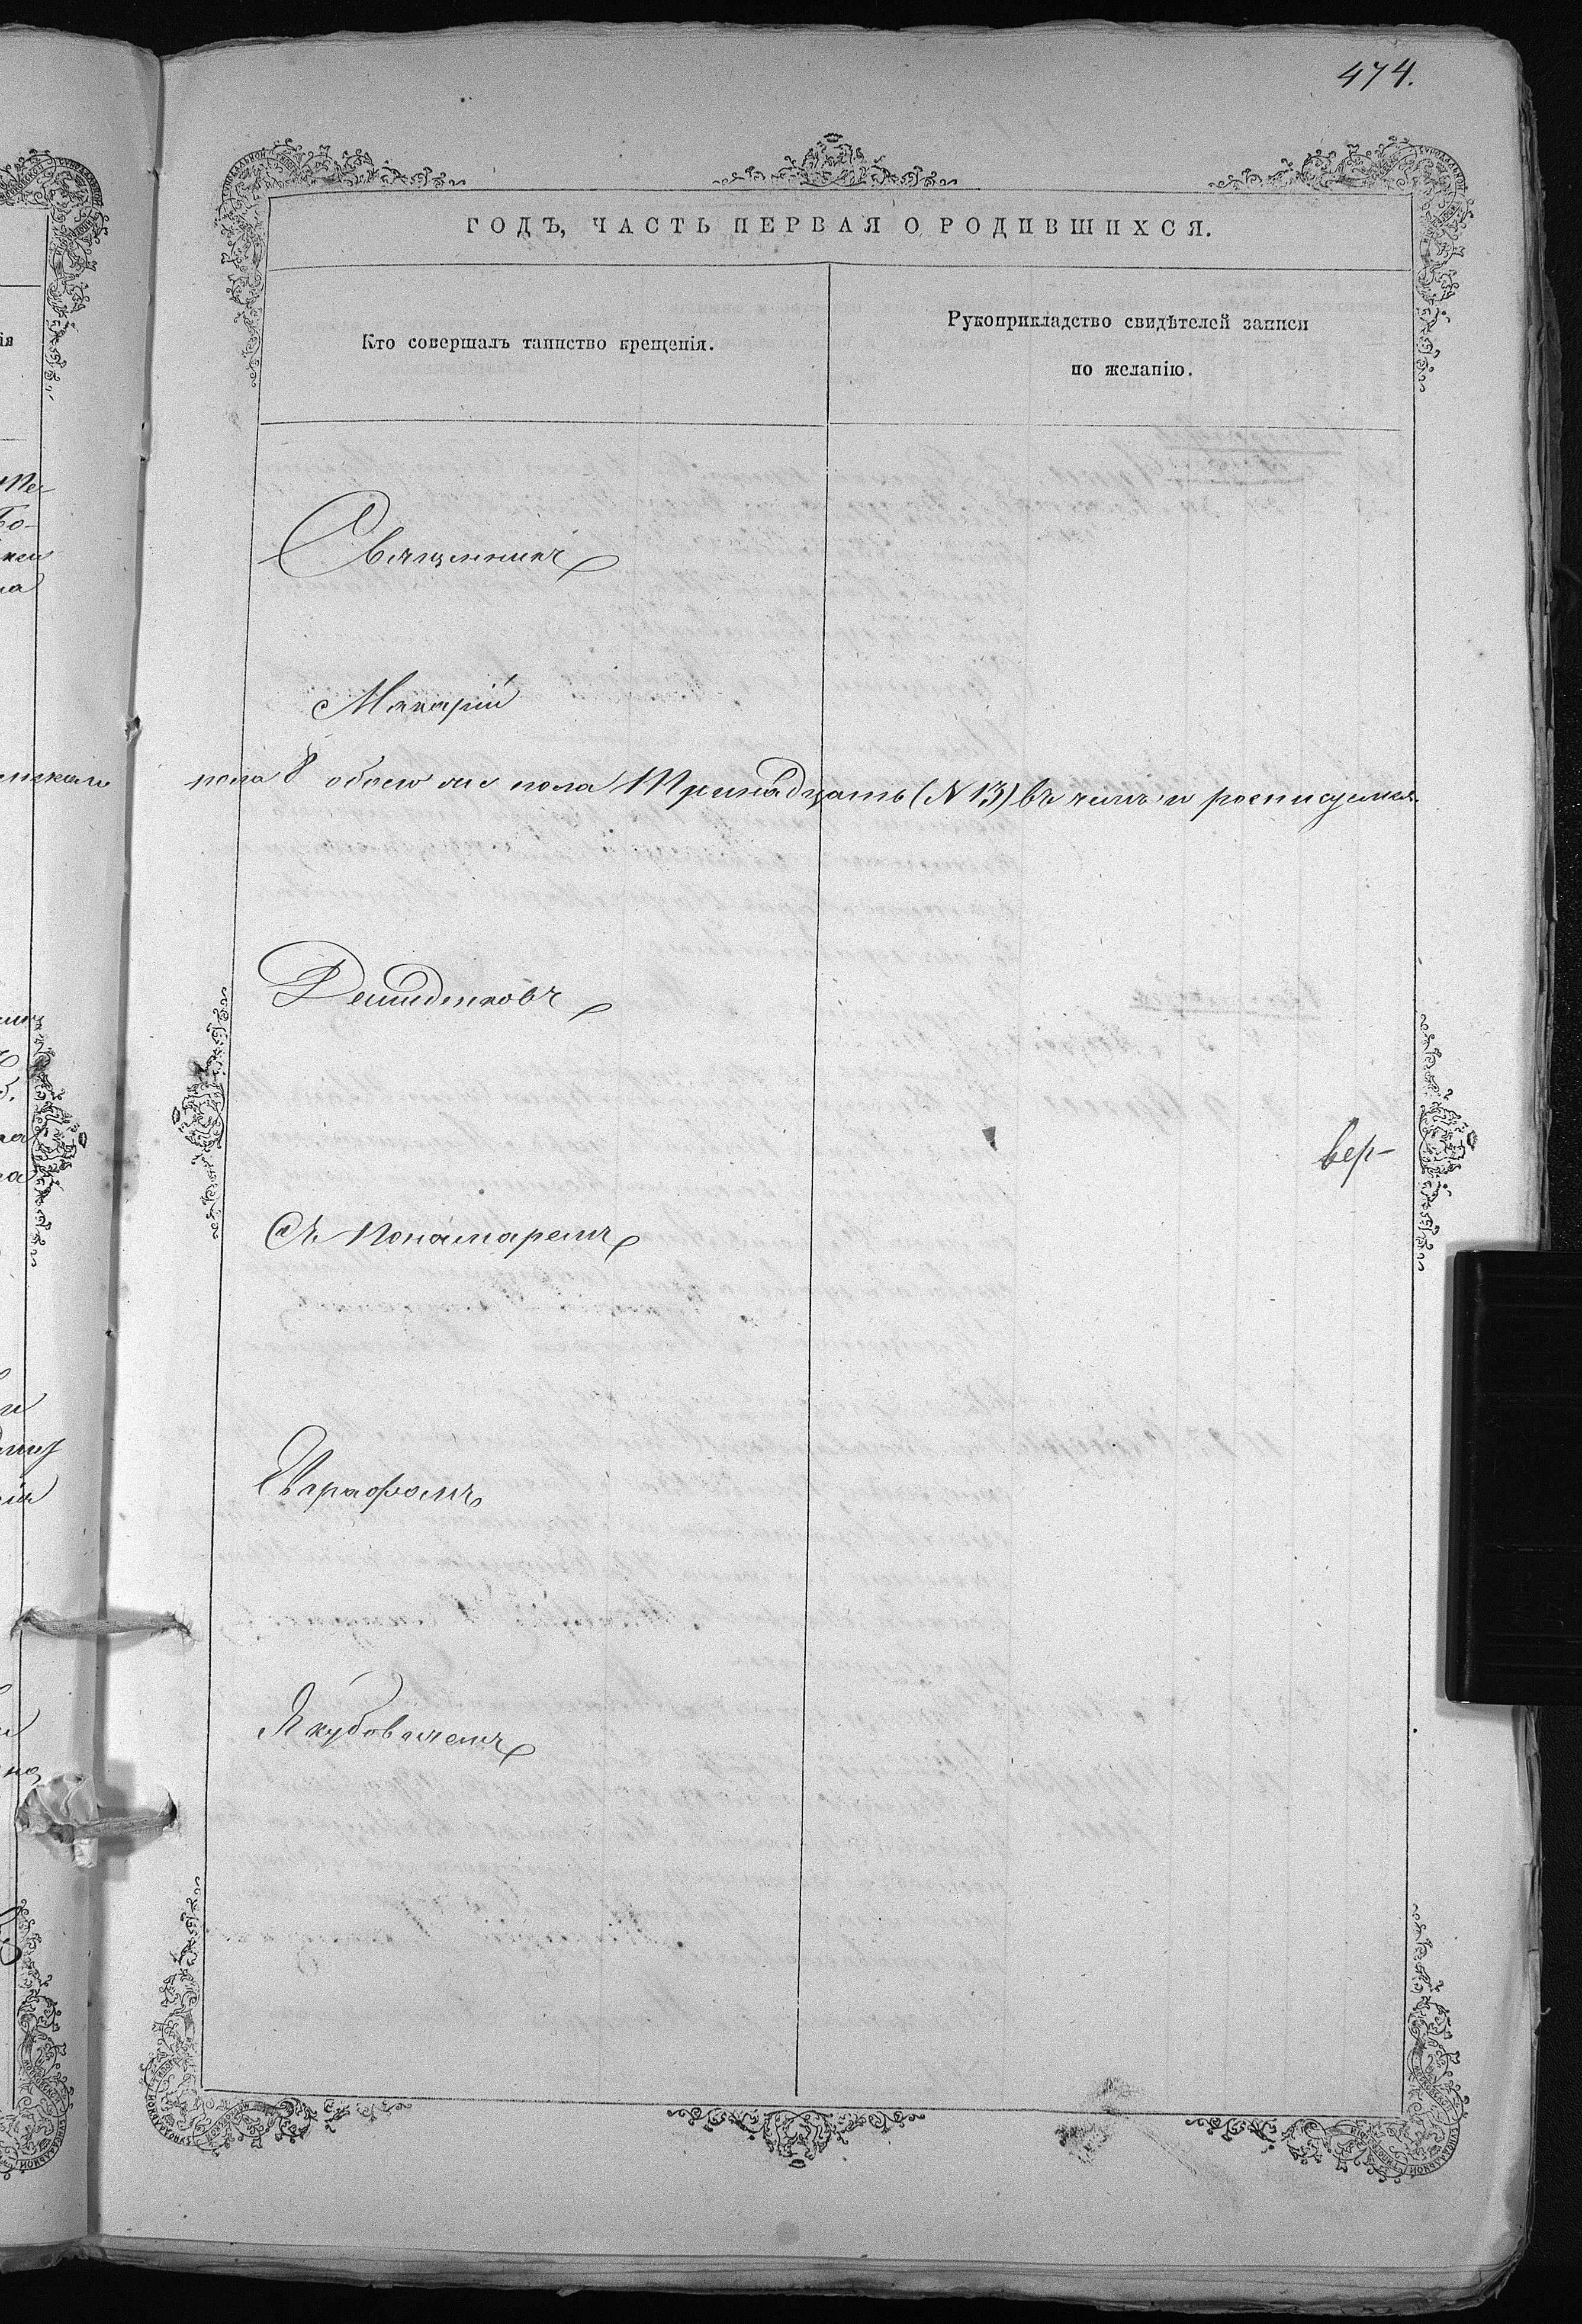 474.
ГОДЪ, ЧАСТЬ ПЕРВАЯ О РОДИВШИХСЯ.
Кто совершалъ таинство крещенія.
Рукоприкладство свидѣтелей записи
по желанію.
Священникъ
Макарій
пола 8 обоего же пола Тринадцать (N 13) въ чемъ и росписуемся.
Демиденковъ
вер-
Съ Понамаремъ
Евграфомъ
Якубовичемъ